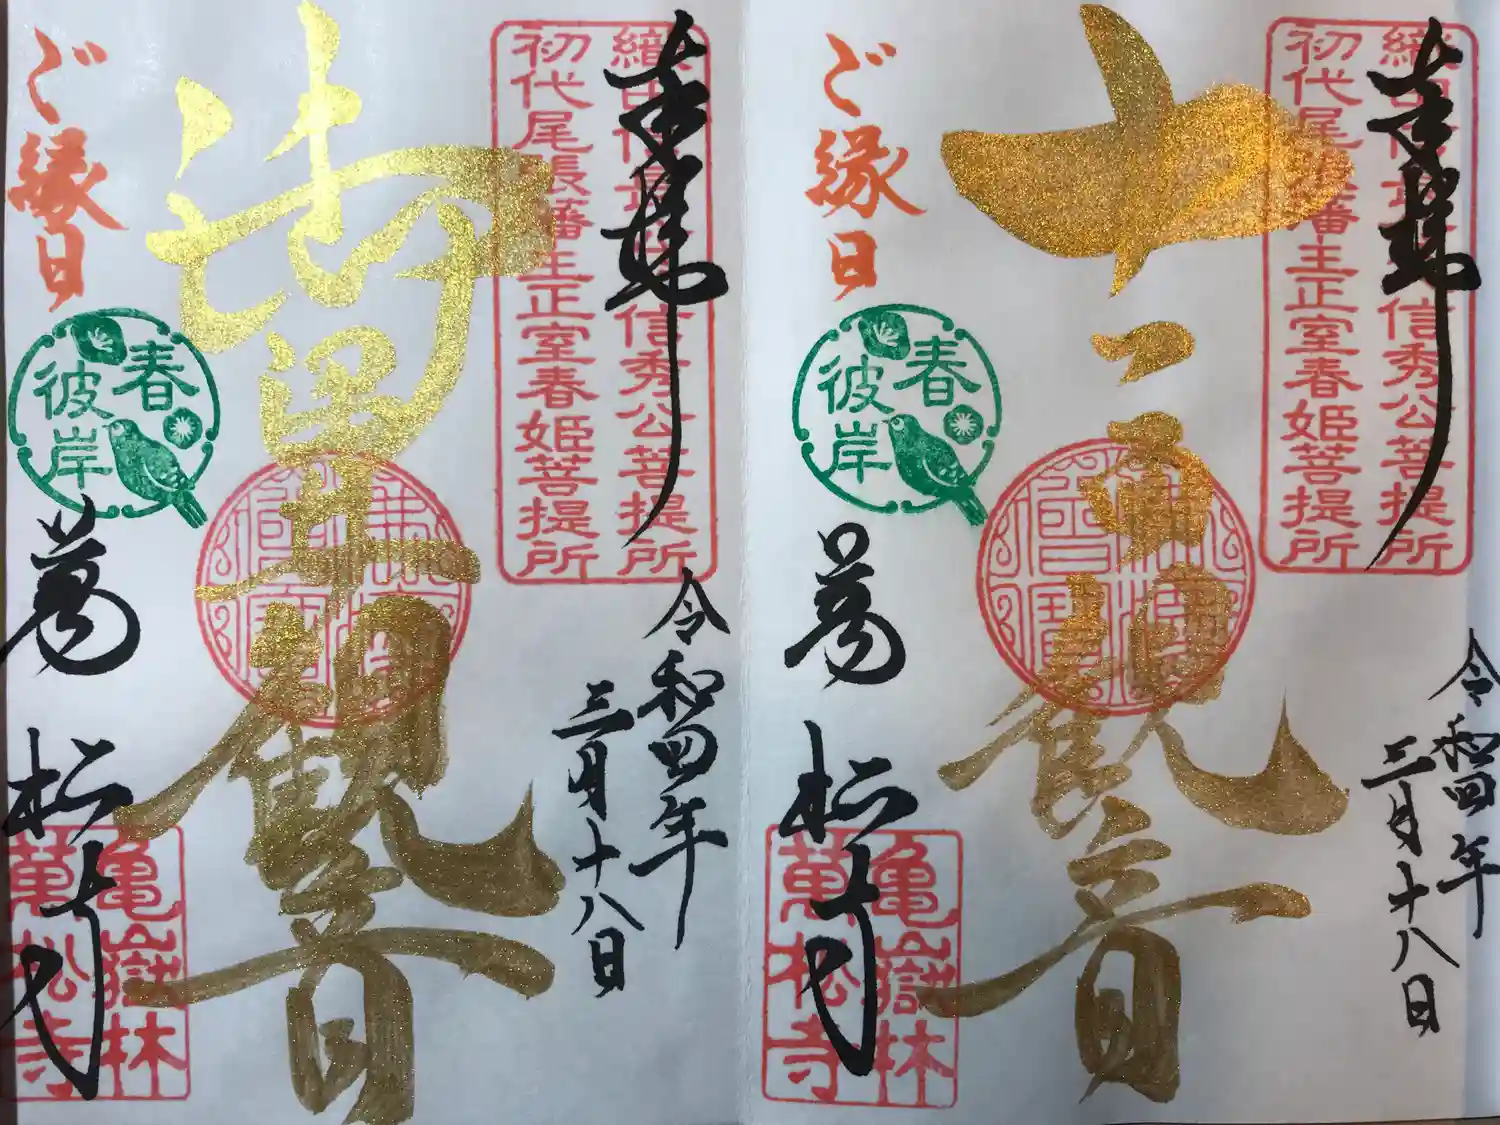 奉拝
信秀公菩提所
初代尾張藩主正室春姫菩提所
令和四年
三月十八日
十一面観音
佛法僧寶
ご縁日
春彼岸
萬松寺
亀嶽林
萬松寺
奉拝
信秀公菩提所
初代尾張藩主正室春姫菩提所
令和四年
三月十八日
観音
佛法僧寶
ご縁日
春彼岸
萬松寺
亀嶽林
萬松寺